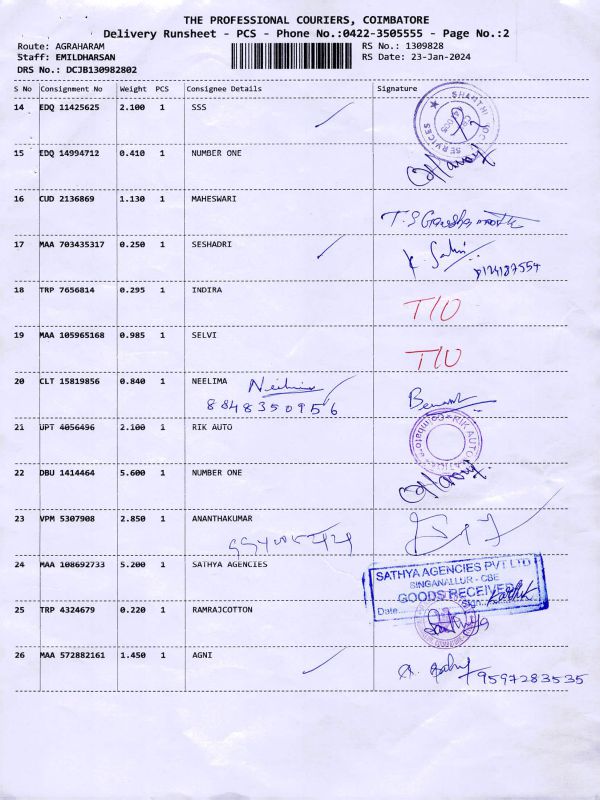 THE PROFESSIONAL COURIERS, COIMBATORE
Delivery Runsheet - PCS - Phone No.:0422-3505555 - Page No.:2
Route: AGRAHARAM RS No.: 1309828
Staff: EMILDHARSAN RS Date: 23-Jan-2024
DRS No.: DCJB130982802
S No Consignment No Weight PCS Consignee Details Signature
14 EDQ 11425625 2.100 1 SSS
SHANTHI SOCIAL SERVICES
15 EDQ 14994712 0.410 1 NUMBER ONE
16 CUD 2136869 1.130 1 MAHESWARI
17 MAA 703435317 0.250 1 SESHADRI
18 TRP 7656814 0.295 1 INDIRA T/O
19 MAA 105965168 0.985 1 SELVI T/O
20 CLT 15819856 0.840 1 NEELIMA
8848350956
21 UPT 4056496 2.100 1 RIK AUTO
RIK AUTO
22 DBU 1414464 5.600 1 NUMBER ONE
23 VPM 5307908 2.850 1 ANANTHAKUMAR
24 MAA 108692733 5.200 1 SATHYA AGENCIES
SATHYA AGENCIES PVT LTD
SINGANALLUR - CBE
GOODS RECEIVER
Date Sign
25 TRP 4324679 0.220 1 RAMRAJCOTTON
26 MAA 572882161 1.450 1 AGNI
9597283535